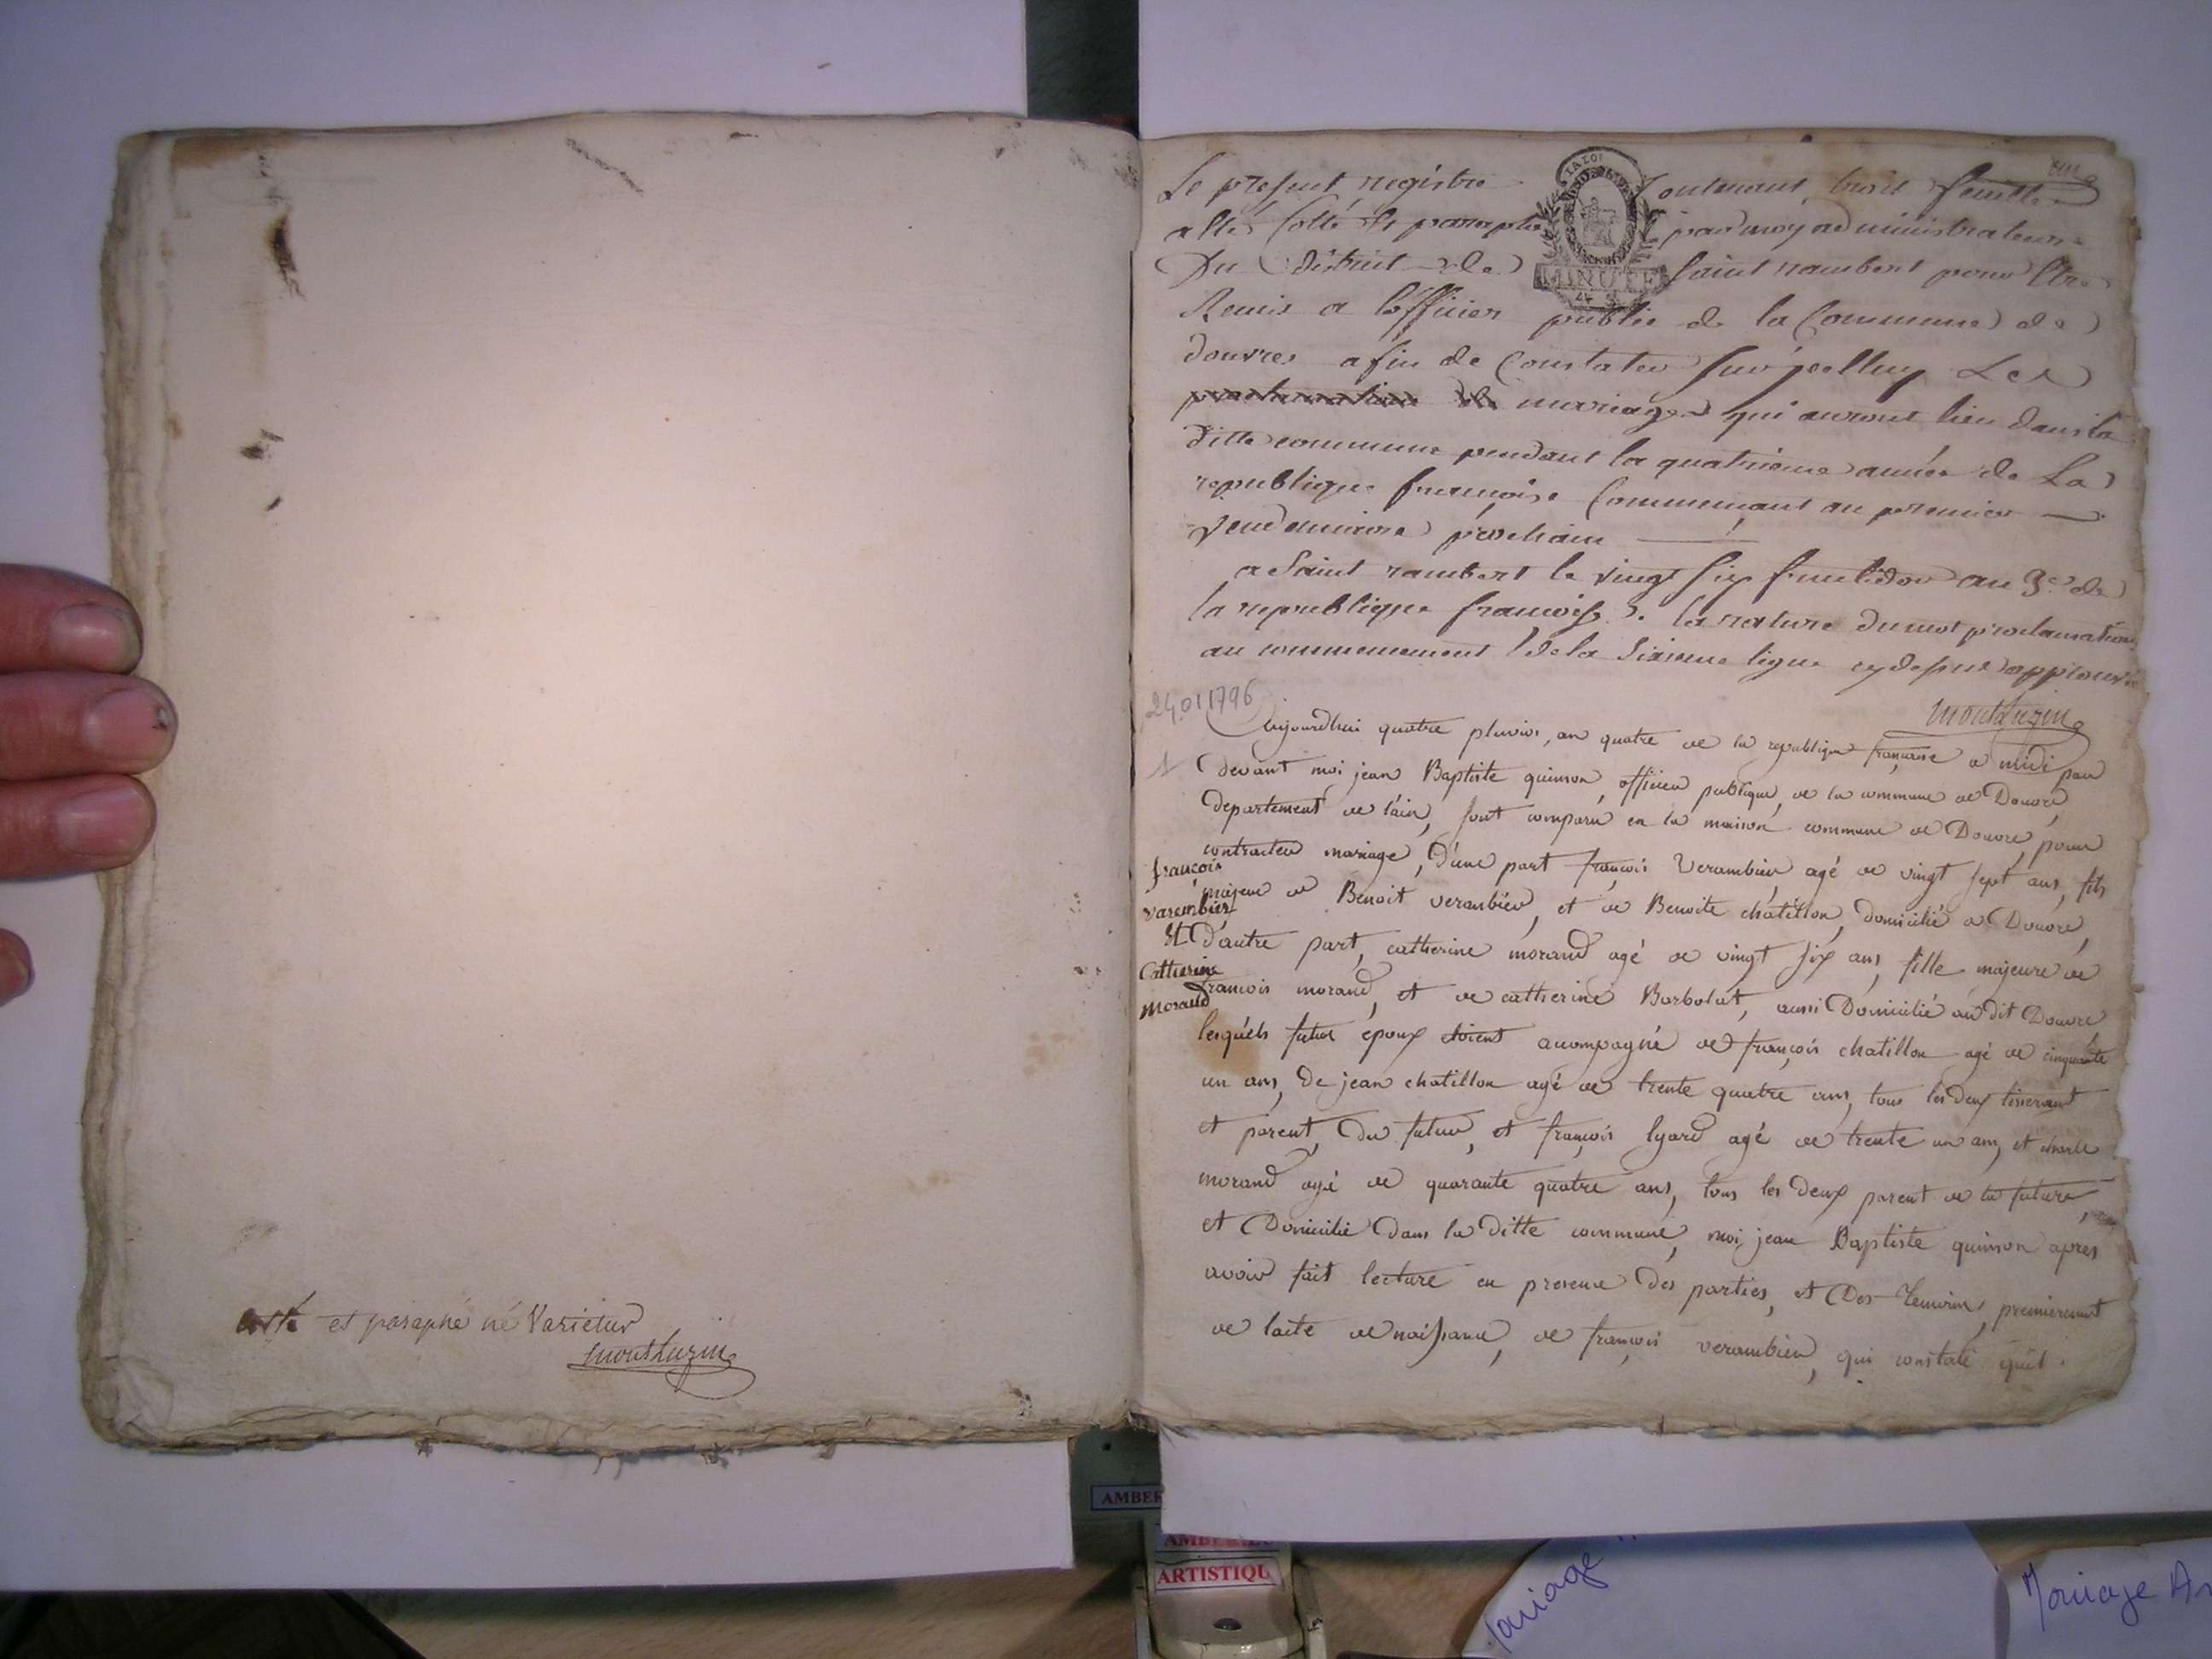 cotté et paraphé né Varietur
montluzin
un
Le present registre contenant trois feuilles
a été Cotté et paraphé par moy administrateur
Du District de Saint rambert pour être
Remis a l'officier public de la Commune de
douvres afin de Constater sur jcelluy Les
proclamations de mariages qui auront lieu dans la
ditte commune pendant la quatrieme année de La
republique françoise Commençant au premier
Vendemiaire prochain
a Saint rambert le vingt six fructidor an 3e de
la republique françoise. la rature du mot proclamation
au commencement de la sixieme ligne cy dessus approuvée
montluzin
MINUTE
24.01.1796
1
Aujourdhui quatre pluvios, an quatre de la republique française a midi par
devant moi jean Baptiste quinson, officier publique, de la commune de Douvre,
departement de l'ain, sont comparu en la maison commune de Douvre, pour
contracter mariage, D'une part françois Verambier agé de vingt sept ans, fils
majeur de Benoit verambier, et de Benoite chatillon, domicilié a Douvre,
françois
varembier
Et
Catherine
Morand
D'autre part, catherine morand agé de vingt six ans, fille majeure de
francois morand, et de catherine Borbolat, aussi Domicilié au dit Douvre
lesquels futur epoux etoient acompagné de françois chatillon agé de cinquante
un ans, De jean chatillon agé de trente quatre ans, tous les deux tisserant
et parent, Du futur, et françois lyard agé de trente un ans, et charle
morand agé de quarante quatre ans, tous les deux parent de la future,
et Domicilié Dans la Ditte commune, moi jean Baptiste quinson apres
avoir fait lecture en presence Des parties, et Des Temoins, premierement
de lacte de naissance, de françois verambier, qui constate quil
AMBER
ARTISTIQU
Mariage